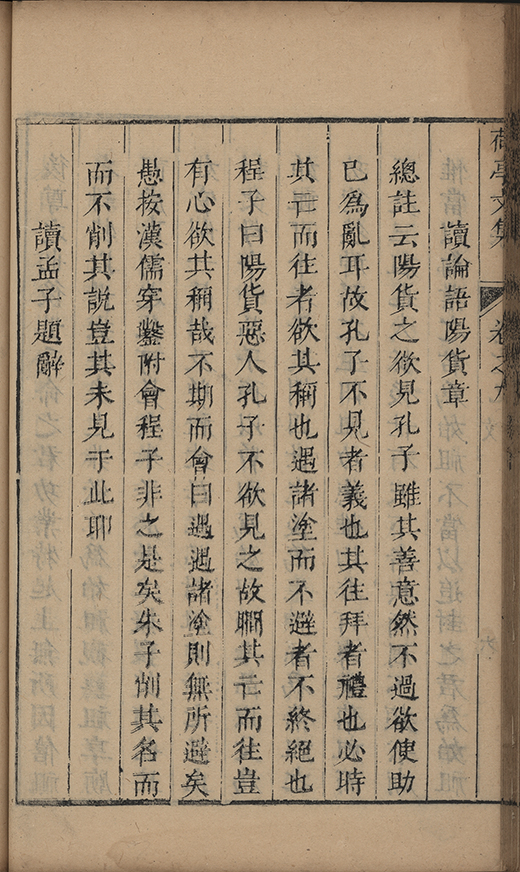 荷亭文集 卷之九
讀論語陽貨章
總註云陽貨之欲見孔子雖其善意然不過欲使助
已為亂耳故孔子不見者義也其往拜者禮也必時
其亡而往者欲其稱也遇諸塗而不避者不終絕也
程子曰陽貨惡人孔子不欲見之故瞷其亡而往豈
有心欲其稱哉不期而會曰遇遇諸塗則無所避矣
愚按漢儒穿鑿附會程子非之是矣朱子削其名而
而不削其說豈其未見于此耶
讀孟子題辭